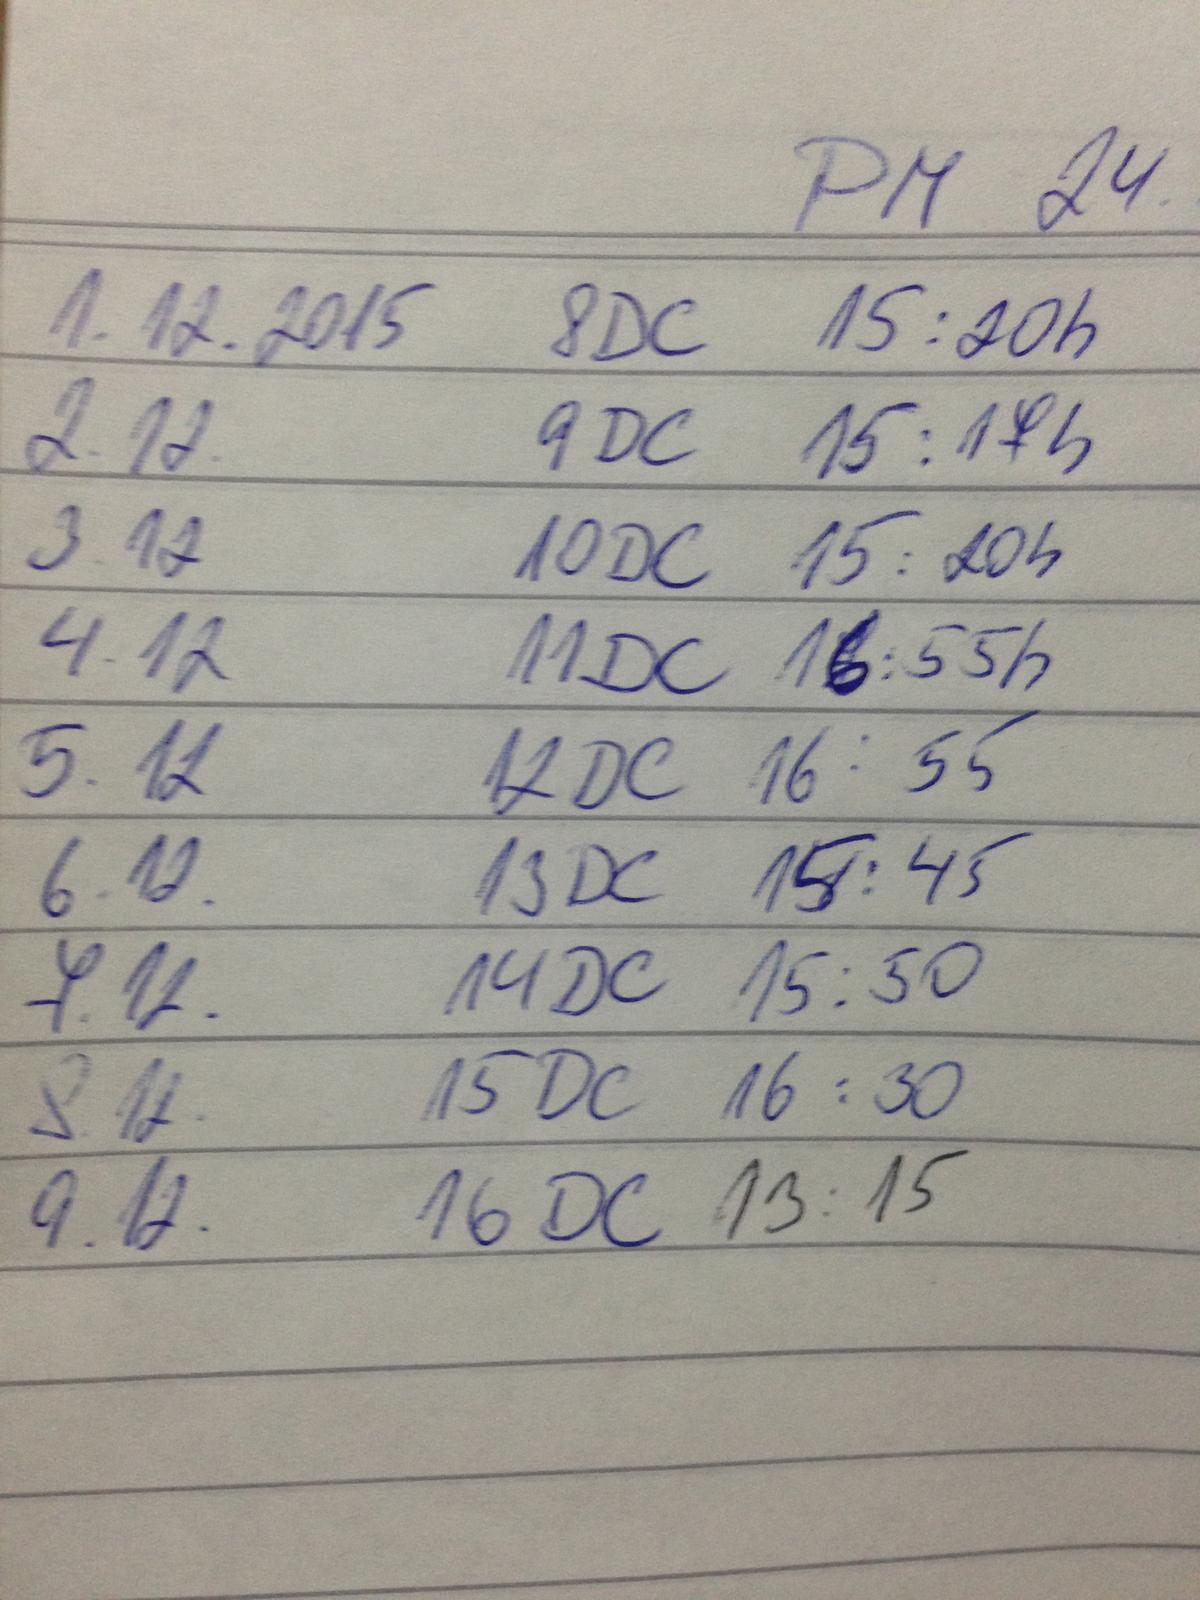 PM 24.
1.12.2015 8DC 15:20h
2.12. 9DC 15:17h
3.12 10DC 15:20h
4.12 11DC 16:55h
5.12 12DC 16:55
6.12. 13DC 15:45
7.12. 14DC 15:50
8.12. 15DC 16:30
9.12. 16DC 13:15